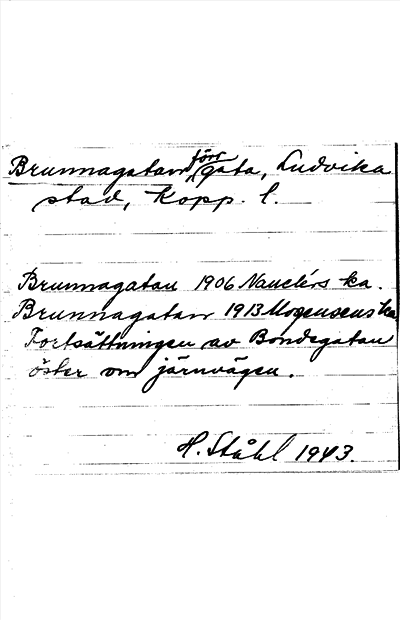 Brunnagatan, förr gata, Ludvika
stad, Kopp. l.
Brunnagatan 1906 Nauclérs ka.
Brunnagatan 1913 Mogensens ka
Fortsättningen av Bondegatan
öster om järnvägen.
H. Ståhl 1943.